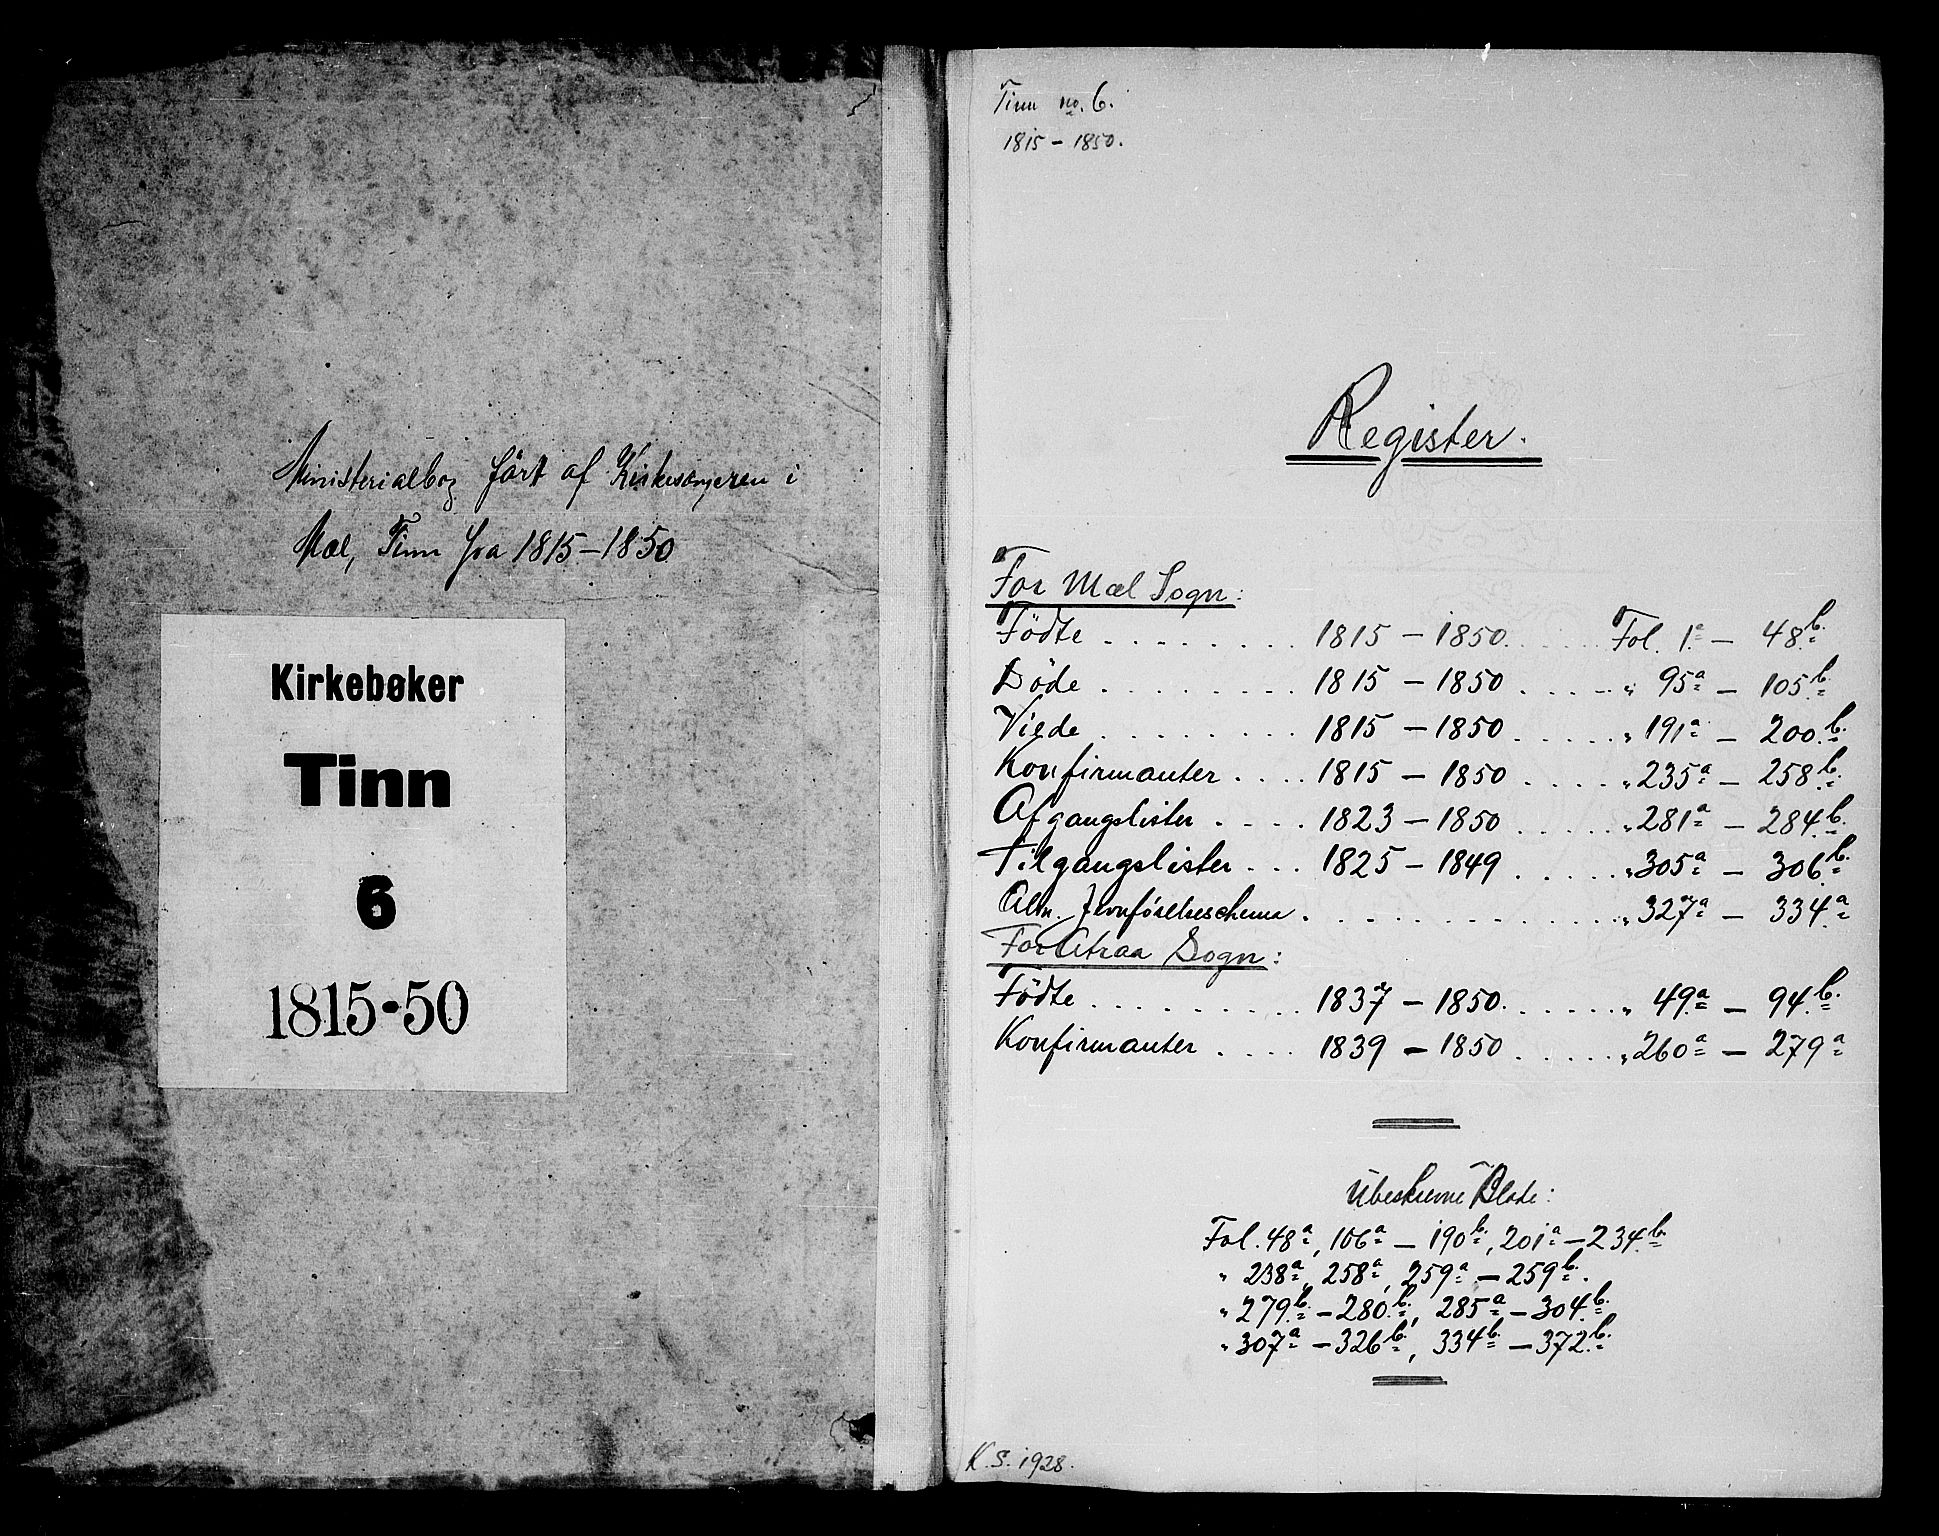 Ministerialbog ført af Kirkesangeren i
Mæl, Tinn fra 1815-1850
Kirkebøker
Tinn
6
1815-50
Tinn no. 6.
1815 - 1850.
Register.
For Mæl Sogn:
Födte . . . . . . . . 1815 - 1850 . . . . . Fol. 1a - 48b.
Døde . . . . . . . . 1815 - 1850 . . . . . " 95a - 105b.
Viede . . . . . . . . 1815 - 1850 . . . . . " 191a - 200b.
Konfirmanter . . . . 1815 - 1850 . . . . . " 235a - 258b.
Afgangslister . . . . 1823 - 1850 . . . . . " 281a - 284b.
Tilgangslister . . . 1825 - 1849 . . . . . " 305a - 306b.
Alm. Jevnförelseschema . . . . . . . . . . " 327a - 334a
For Atraa Sogn:
Födte . . . . . . . . 1837 - 1850 . . . . . " 49a - 94b.
Konfirmanter . . . . 1839 - 1850 . . . . . " 260a - 279a
Ubeskrevne Blade:
Fol. 48a, 106a - 190b, 201a - 234b.
" 238a, 258a, 259a - 259b.
" 279b - 280b, 285a - 304b.
" 307a - 326b, 334b - 372b.
K. S. 1928.